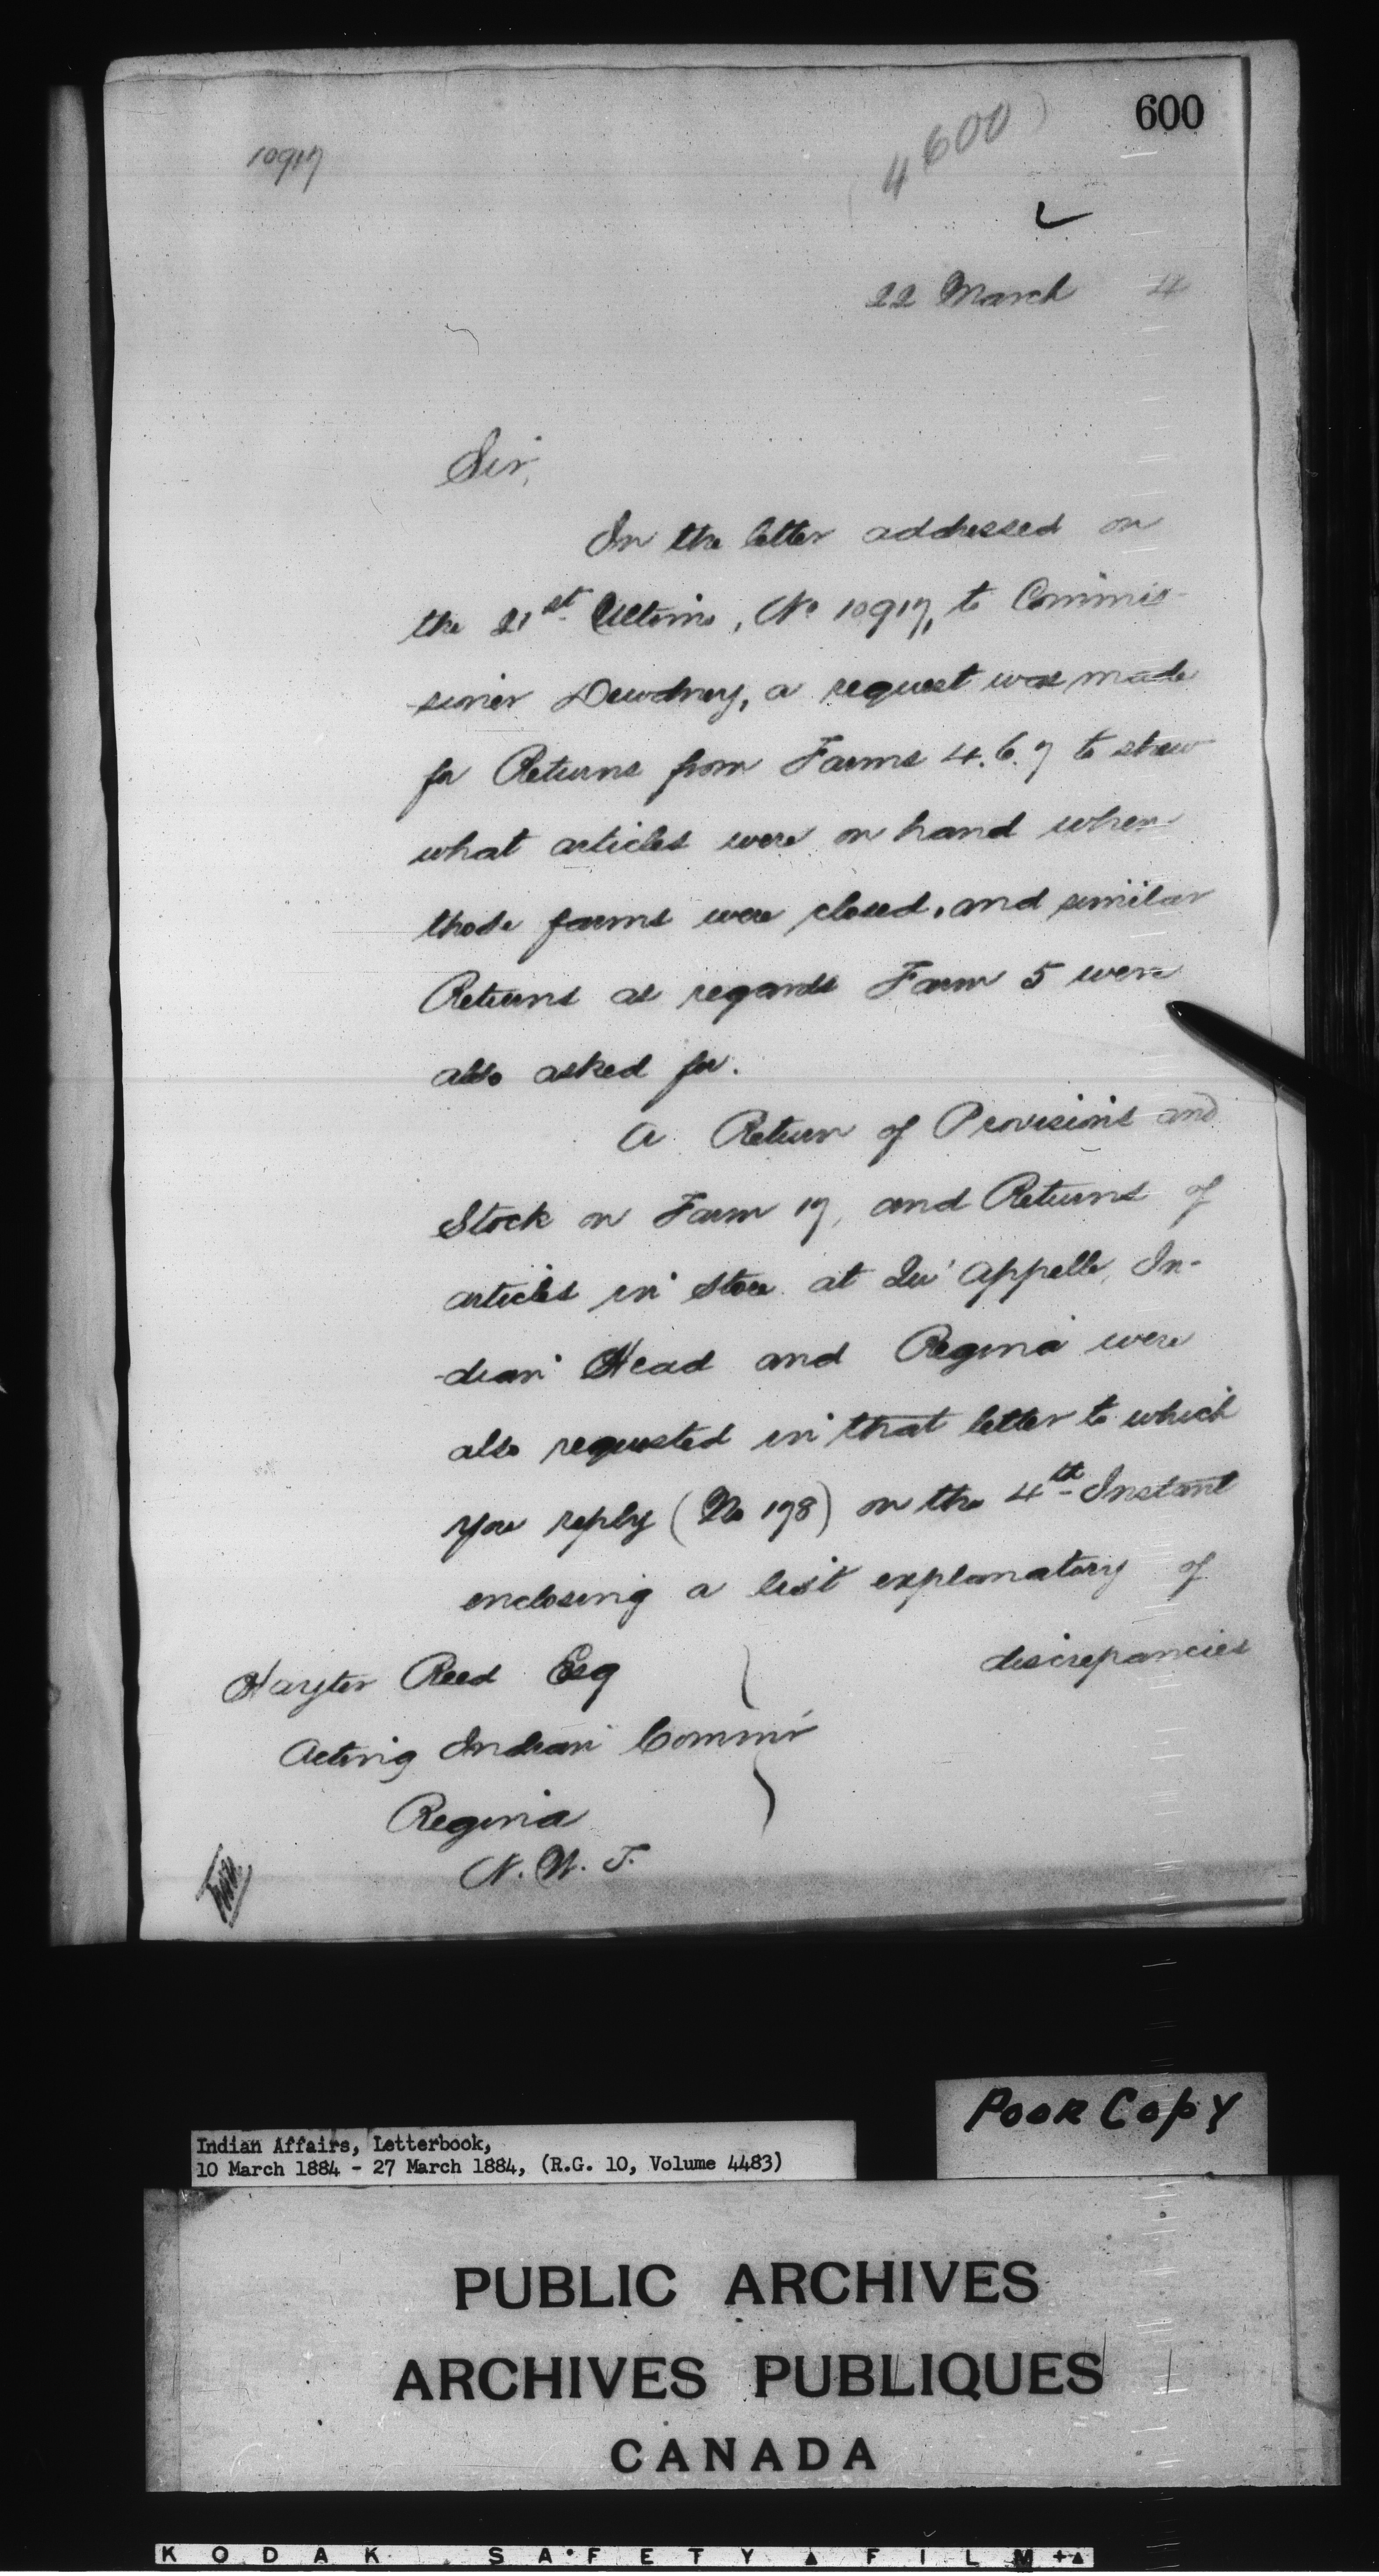 600
10917
4 600
22 March 4
Sir,
In the letter addressed on
the 21st Ultimo, No 10917, to Commis-
sioner Dewdney, a request was made
for Returns from Farms 4. 6. 7 to shew
what articles were on hand when
those farms were closed, and similar
Returns as regards Farm 5 were
also asked for.
A Return of Provisions and
Stock on Farm 17, and Returns of
articles in Store at Qu'Appelle, In-
-dian Head and Regina were
also requested in that letter to which
you reply (No 178) on the 4th Instant
enclosing a list explanatory of
discrepancies
Hayter Reed Esq
Acting Indian Commr
Regina
N. W. T.
Poor Copy
Indian Affairs, Letterbook,
10 March 1884 - 27 March 1884, (R.G. 10, Volume 4483)
PUBLIC ARCHIVES
ARCHIVES PUBLIQUES
CANADA
KODAK SAFETY FILM